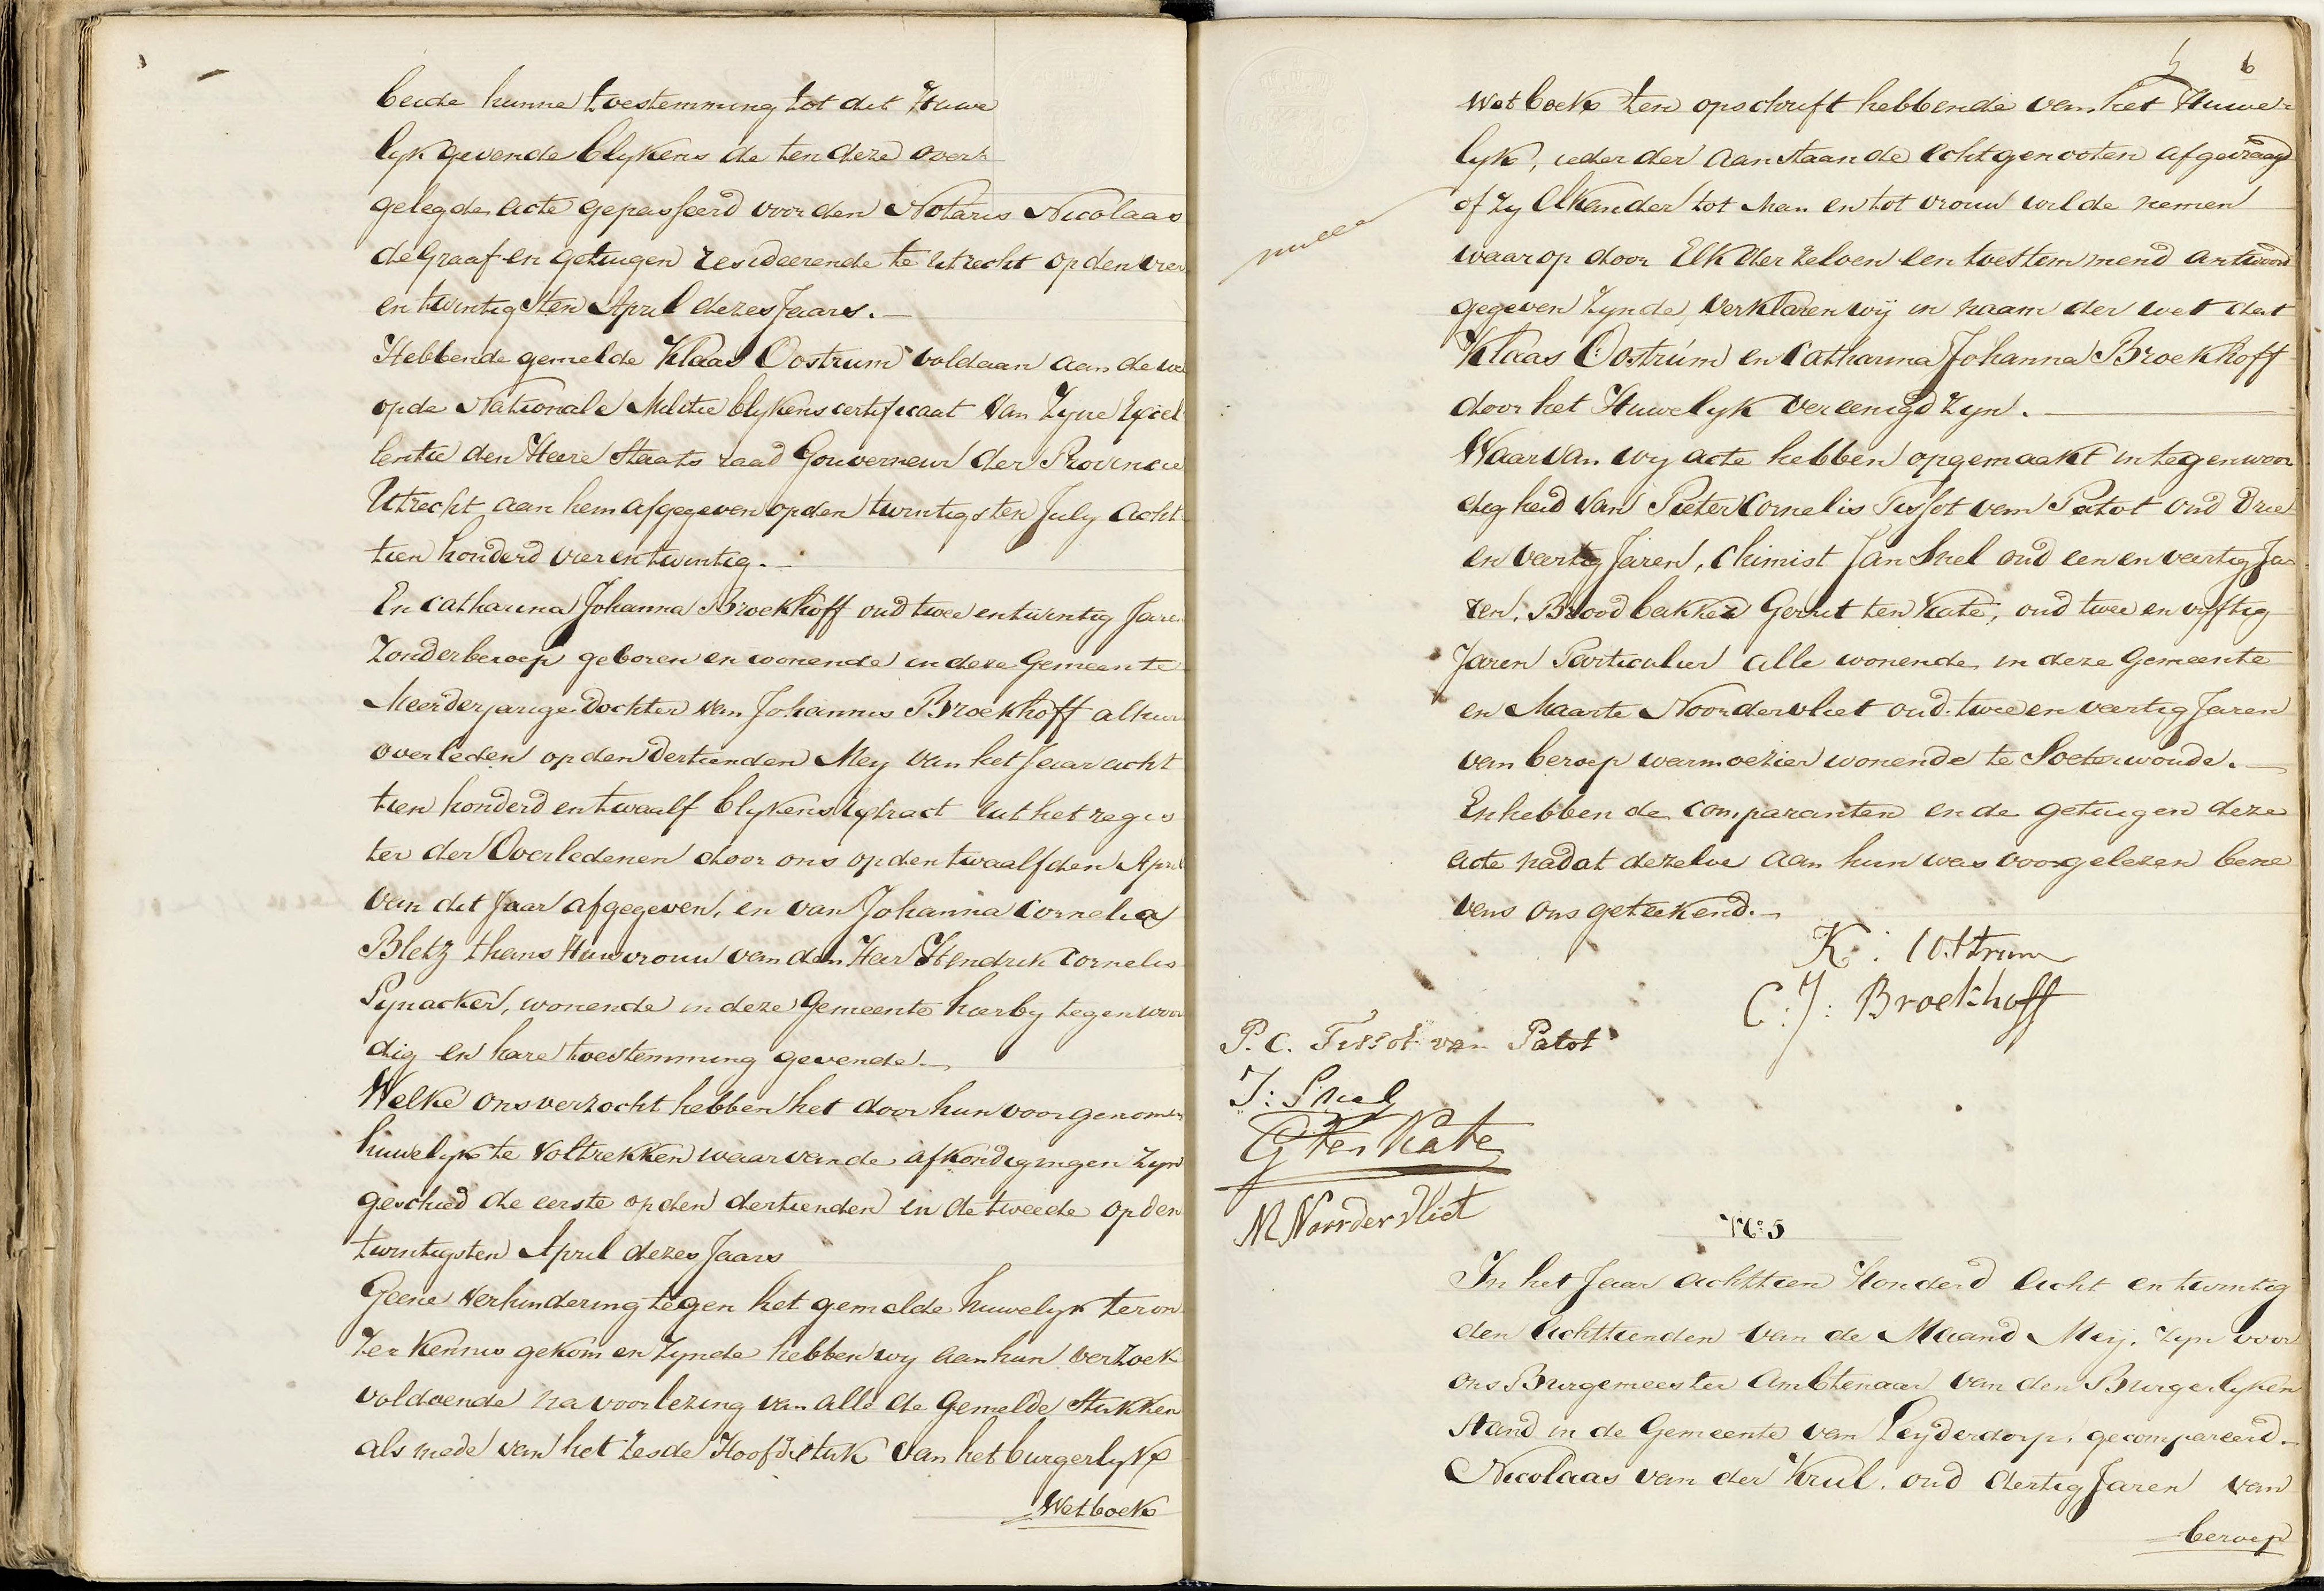 beide hunne toestemming tot dit Huwe
lyk gevende blykens de ten deze over-
gelegde acte gepasseerd voor den Notaris Nicolaas
de Graaf en getuigen resideerende te Utrecht op den vier
en twintigsten April dezes Jaars.
Hebbende gemelde Klaas Oostrum voldaan aan de wet
op de Nationale Militie blykens certificaat van Zyne Excel
lentie den Heere Staats raad Gouverneur der Provincie
Utrecht aan hem afgegeven op den twintigsten July acht
tien honderd vier en twintig.
En Catharina Johanna Broekhoff oud twee en twintig Jaren
Zonder beroep geboren en wonende in deze Gemeente
Meerderjarige Dochter van Johannes Broekhoff alhier
overleden op den dertienden Mey van het Jaar acht
tien honderd en twaalf blykens Extract uit het regis
ter der Overledenen door ons op den twaalfden April
van dit Jaar afgegeven, en van Johanna Cornelia
Bletz thans Huisvrouw van den Heer Hendrik Cornelis
Pynacker, wonende in deze Gemeente hierby tegenwoor
dig en hare toestemming gevende.
Welke ons verzocht hebben het door hun voorgenomen
huwelyk te voltrekken waar van de afkondigingen zyn
geschied de eerste op den dertienden en de tweede op den
twintigsten April dezes Jaars
Geene verhindering tegen het gemelde huwelyk ter on
zer kennis gekomen zynde hebben wy aan hun verzoek
voldoende na voorlezing van alle de gemelde stukken
als mede van het zesde Hoofdstuk van het burgerlyke
Wetboek
6
Wetboek ten opschrift hebbende van het Huwe-
lyk, ieder der aanstaande echtgenooten afgevraagd
of zy elkander tot Man en tot vrouw wilde nemen
waar op door Elk der zelven een toestemmend antwoord
gegeven zynde, verklaren wij in naam der wet dat
Klaas Oostrum en Catharina Johanna Broekhoff
door het Huwelyk vereenigd zyn.
Waar van wy acte hebben opgemaakt in tegenwoor
digheid van Pieter Cornelis Tissot van Patot oud drie
en veertig Jaren, Chimist Jan Snel oud een en veertig Ja-
ren, Broodbakker Gerrit ten Kate, oud twee en vyftig
Jaren Particulier alle wonende in deze Gemeente
en Maarte Noordervliet oud twee en veertig Jaren
van beroep warmoezier wonende te Soeterwoude.
En hebben de comparanten en de getuigen deze
acte nadat dezelve aan hun was voorgelezen bene
vens ons geteekend.
K: Oostrum
C: J: Broekhoff
P. C. Tissot van Patot
J: Snel
G ten Kate
M Noordervliet
No: 5
In het Jaar achttien Honderd acht en twintig
den achttienden van de Maand Meij, zyn voor
ons Burgemeester Ambtenaar van den Burgerlyken
Stand in de Gemeente van Leyderdorp, gecompareerd
Nicolaas van der Krul. oud dertig Jaren van
beroep